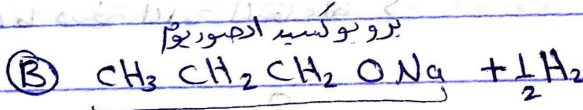 بروبوكسيد الصوديوم
Ⓑ CH₃ CH₂ CH₂ O Na + 1/2 H₂